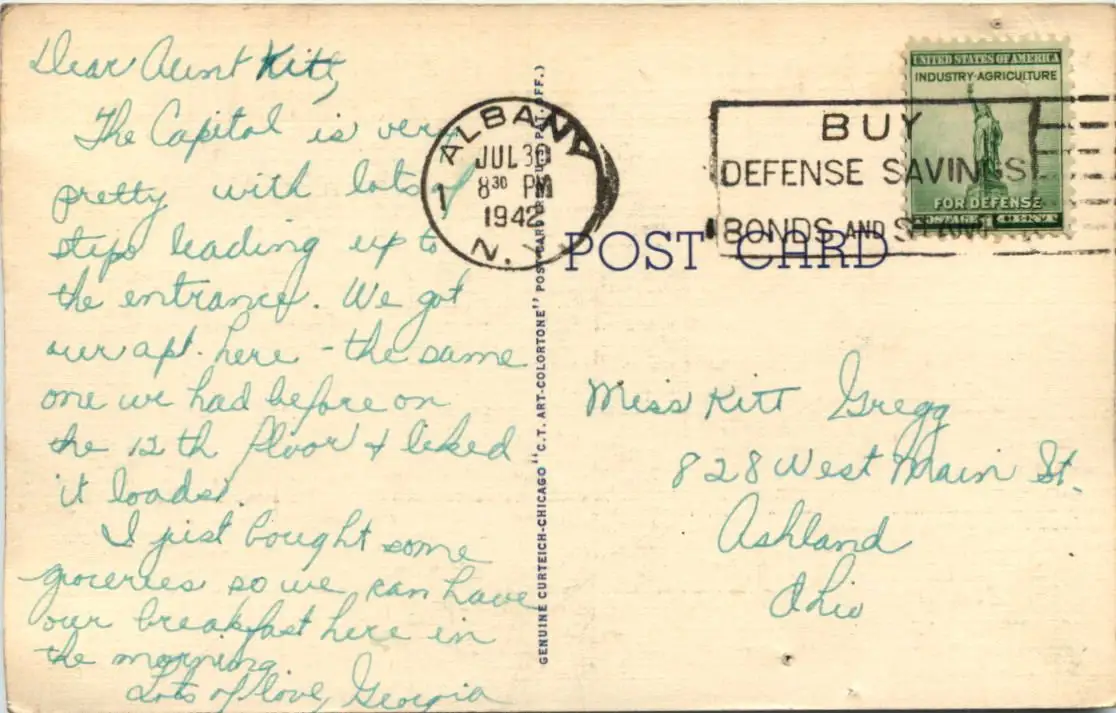 Dear Aunt Kitt,
The Capital is very
pretty with lots of
steps leading up to
the entrance. We got
our apt. here - the same
one we had before on
the 12th floor & liked
it loads.
I just bought some
groceries so we can have
our breakfast here in
the morning.
Lots of love, Georgia
GENUINE CURTEICH-CHICAGO "C.T. ART-COLORTONE" POST CARD (REG. U.S. PAT. OFF.)
ALBANY
JUL 30
8 30 PM
1942
1
N.Y.
BUY
DEFENSE SAVINGS
BONDS AND STAMPS
UNITED STATES OF AMERICA
INDUSTRY-AGRICULTURE
FOR DEFENSE
POSTAGE 1 CENT
POST CARD
Miss Kitt Gregg
828 West Main St.
Ashland
Ohio